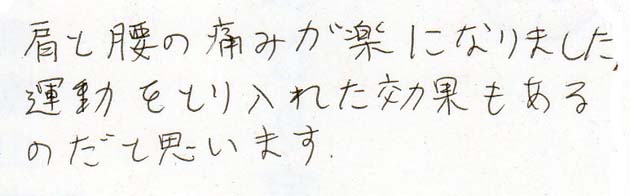 肩と腰の痛みが楽になりました,
運動をとり入れた効果もある
のだと思います.